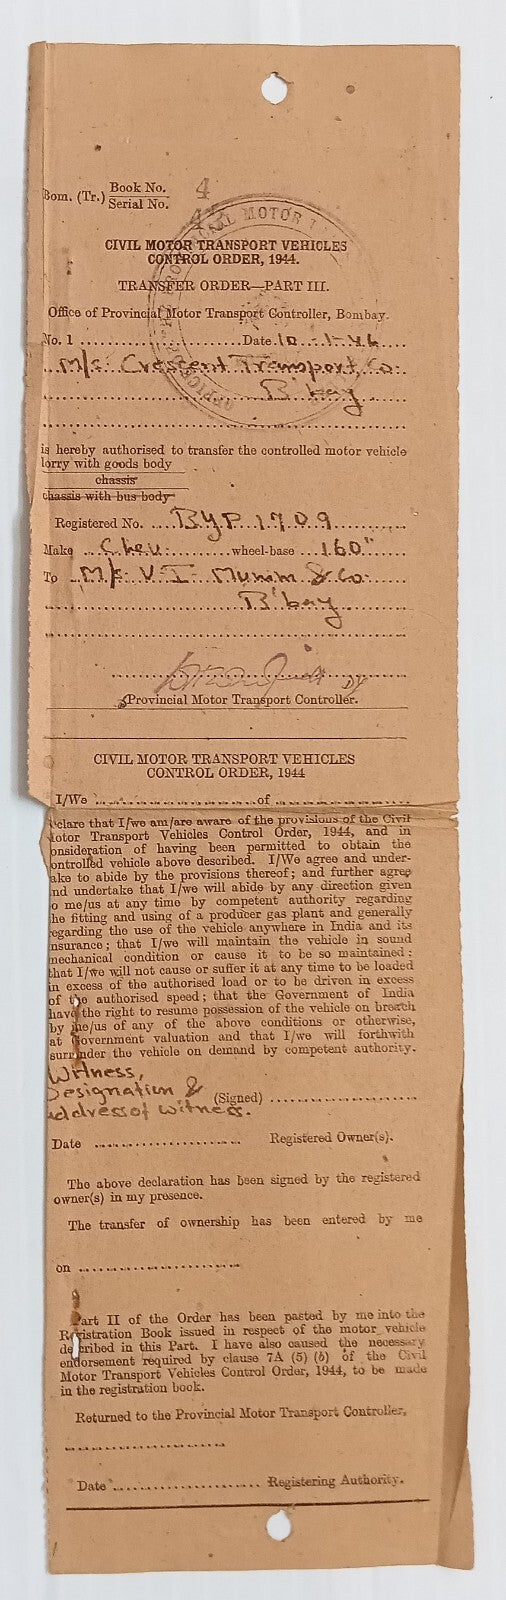 Bom. (Tr.) Book No. 4
Serial No. 4
CIVIL MOTOR TRANSPORT VEHICLES
CONTROL ORDER, 1944.
TRANSFER ORDER—PART III.
Office of Provincial Motor Transport Controller, Bombay.
No. 1 Date 10-1-46
M/s. Crescent Transport Co.
B'bay
is hereby authorised to transfer the controlled motor vehicle
lorry with goods body
chassis
chassis with bus body
Registered No. BYP 1709
Make Chev. wheel-base 160"
To M/s V. I. Mumm & Co.
B'bay
Dy
Provincial Motor Transport Controller.
CIVIL MOTOR TRANSPORT VEHICLES
CONTROL ORDER, 1944
I/We of
eclare that I/we am/are aware of the provisions of the Civil
lotor Transport Vehicles Control Order, 1944, and in
onsideration of having been permitted to obtain the
ontrolled vehicle above described. I/We agree and under-
ake to abide by the provisions thereof; and further agree
nd undertake that I/we will abide by any direction given
o me/us at any time by competent authority regarding
he fitting and using of a producer gas plant and generally
egarding the use of the vehicle anywhere in India and its
nsurance; that I/we will maintain the vehicle in sound
mechanical condition or cause it to be so maintained:
that I/we will not cause or suffer it at any time to be loaded
in excess of the authorised load or to be driven in excess
of the authorised speed; that the Government of India
have the right to resume possession of the vehicle on breach
by me/us of any of the above conditions or otherwise,
at Government valuation and that I/we will forthwith
surrender the vehicle on demand by competent authority.
Witness,
Designation &
address of witness.
(Signed)
Date Registered Owner(s).
The above declaration has been signed by the registered
owner(s) in my presence.
The transfer of ownership has been entered by me
on
Part II of the Order has been pasted by me into the
Registration Book issued in respect of the motor vehicle
described in this Part. I have also caused the necessary
endorsement required by clause 7A (5) (b) of the Civil
Motor Transport Vehicles Control Order, 1944, to be made
in the registration book.
Returned to the Provincial Motor Transport Controller,
Date Registering Authority.